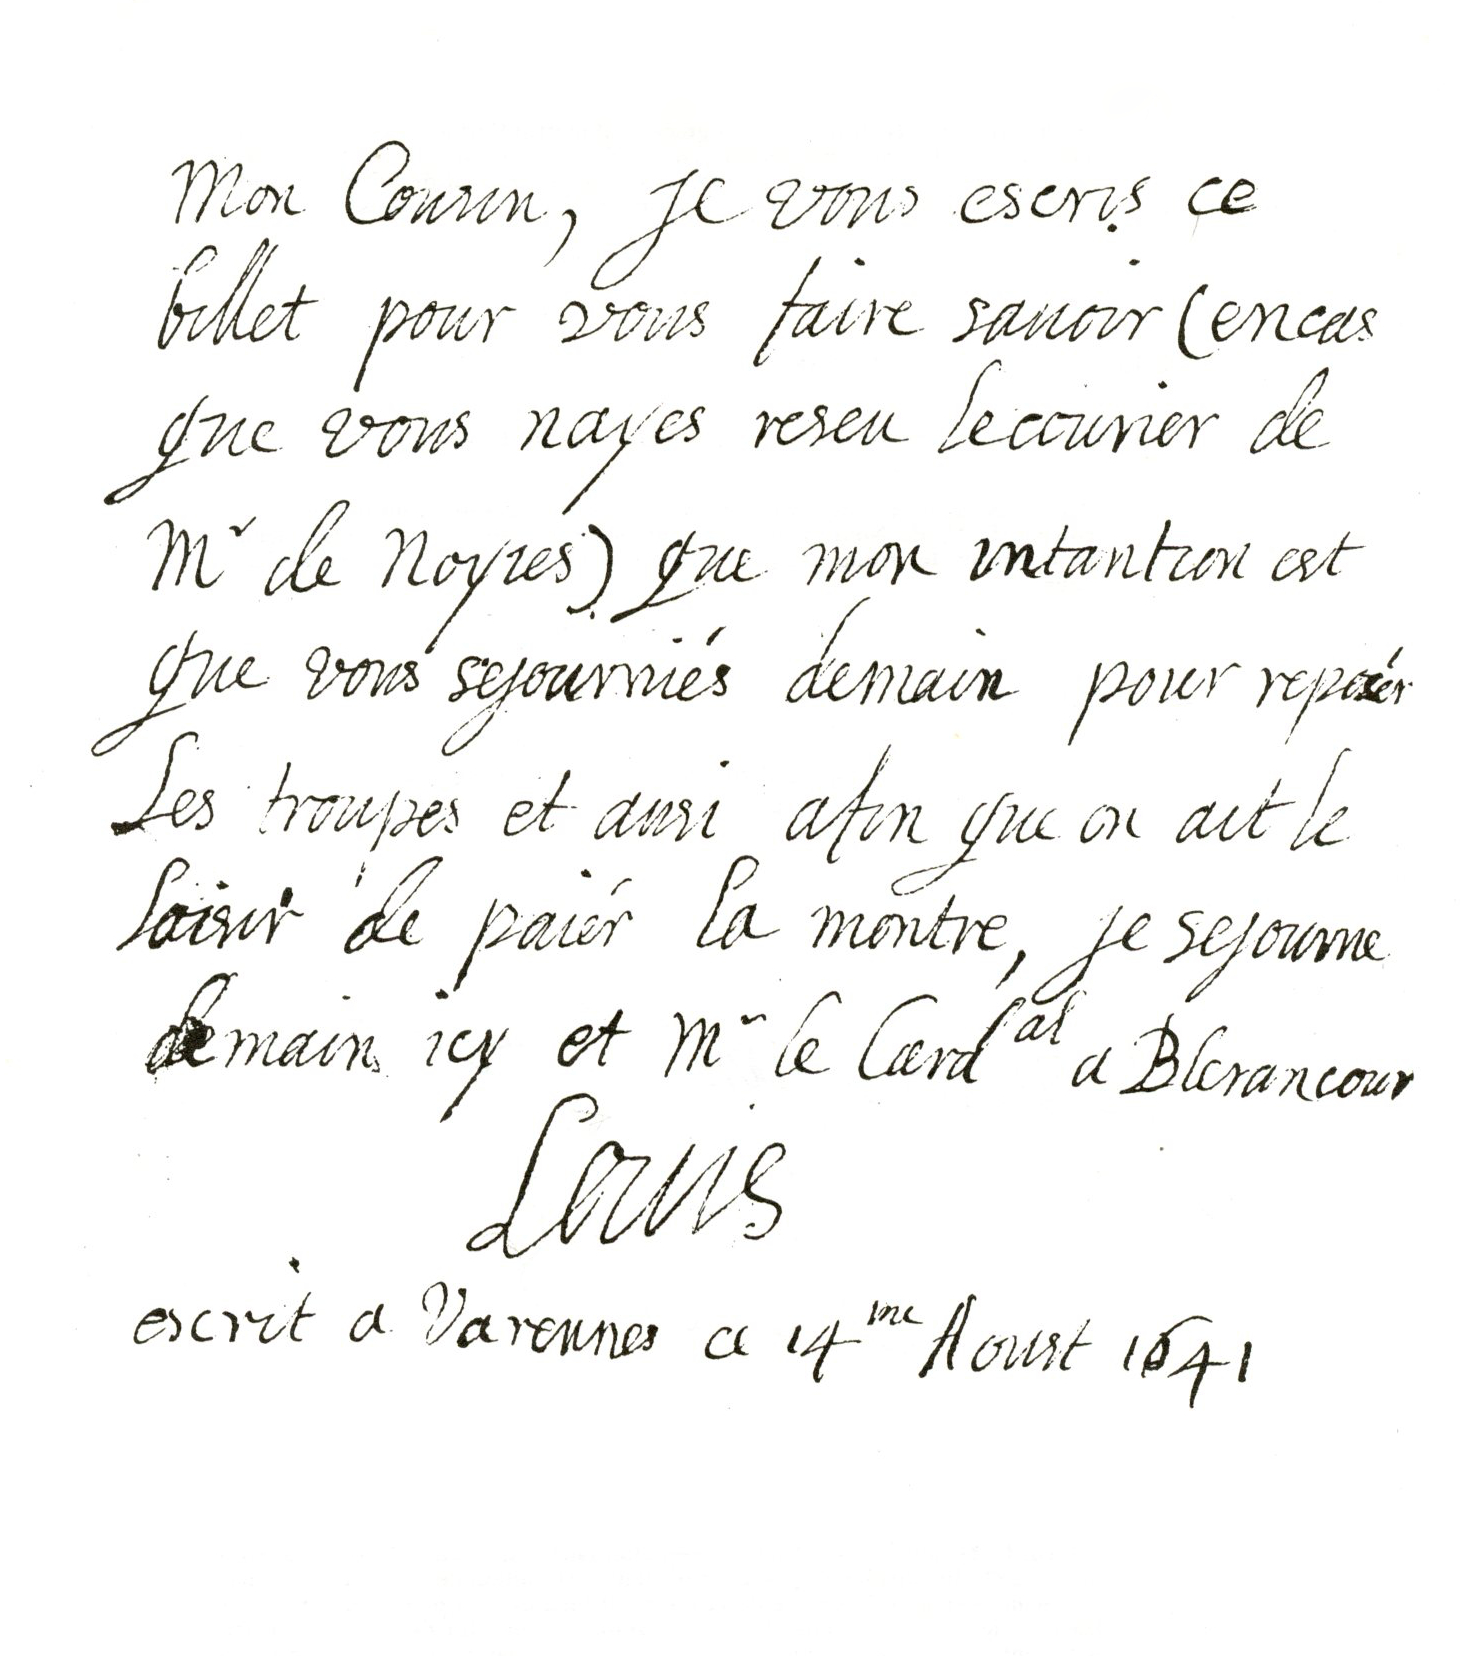 Mon Cousin, je vous escris ce
billet pour vous faire sauoir (encas
que vous nayes reseu le courier de
Mr de Noyres) que mon intantion est
que vous sejourniés demain pour reposér
Les troupes et ausi afin que on ait le
loisir de paiér la montre, je sejourne
demain icy et Mr le Cardal a Blerancour
Louis
escrit a Varennes ce 14me Aoust 1641